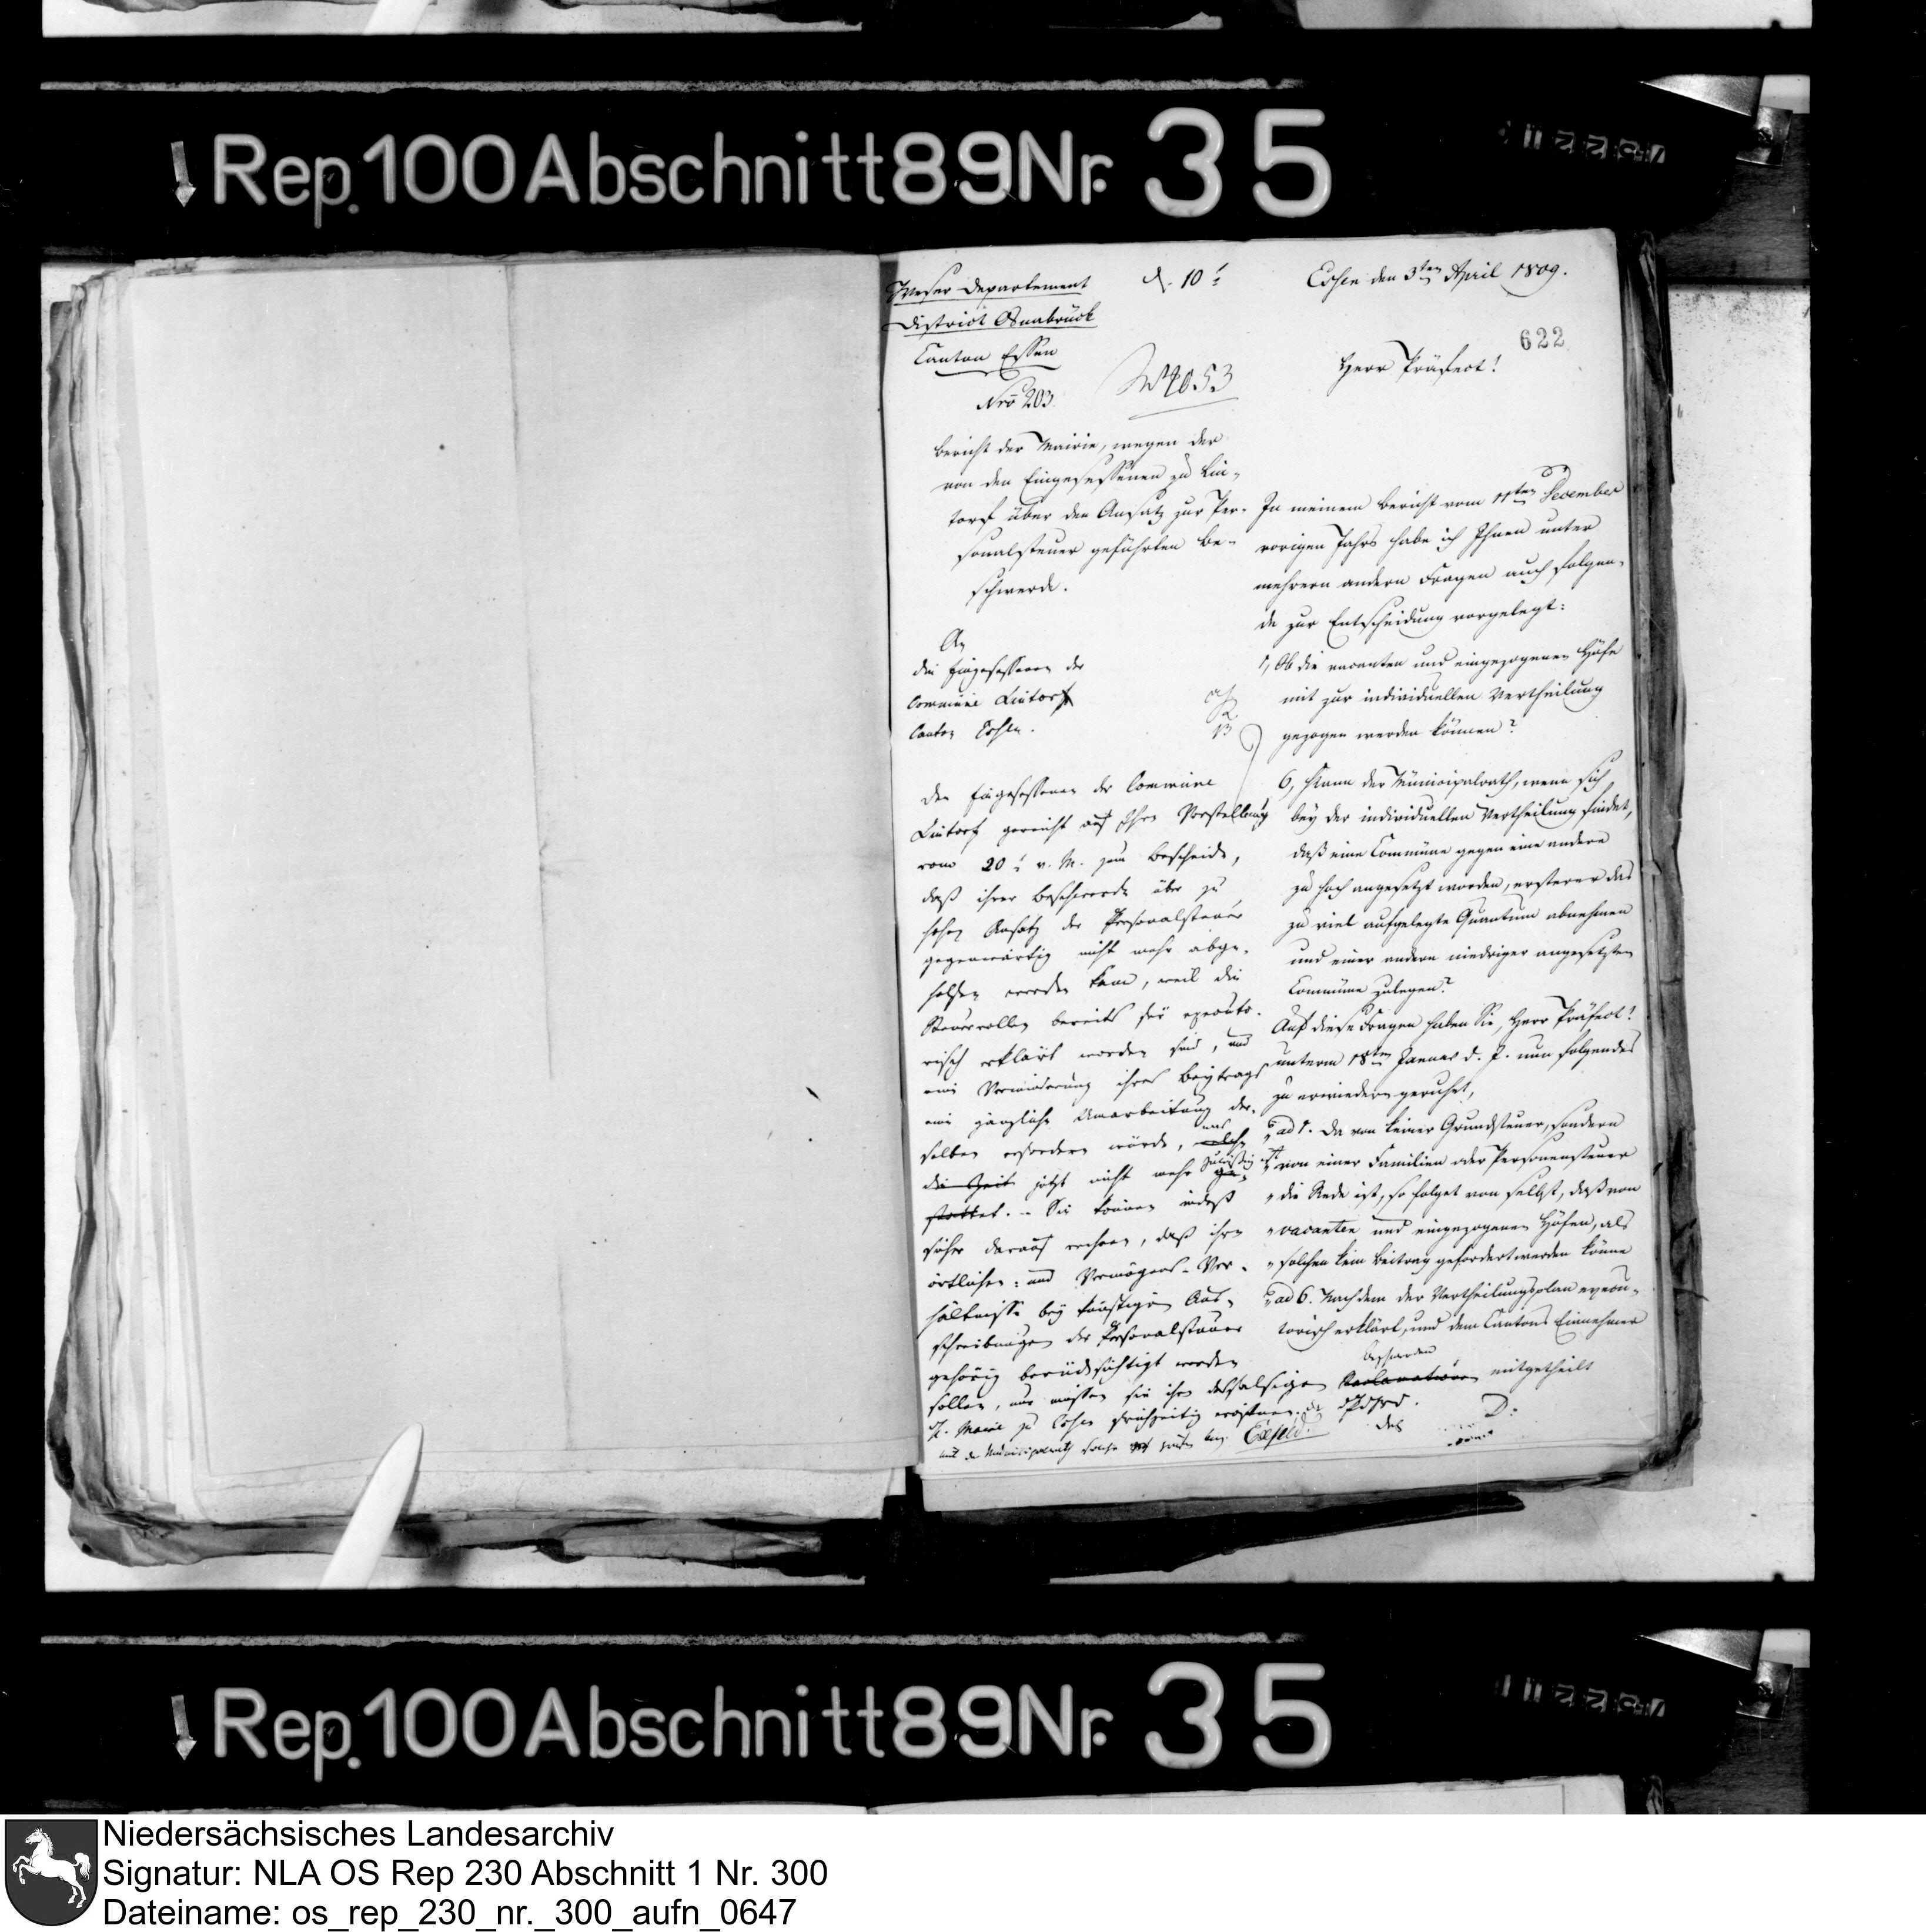 Rep. 100 Abschnitt 89 Nr. 35
Weser Departement
District Osnabrück
Canton Essen
Nro 203.
d. 10
N 4053
Essen den 3ten April 1809.
622
Herr Präfect!
Bericht der Mairie, wegen der
von den Eingesessenen zu Lin-
torf über den Ansatz zur Per-
sonalsteuer geführten Be-
schwerde.
An
die Eingesessenen der
Commüne Lintorf
Canton Essen.
Den Eingesessenen der Commüne
Lintorf gereicht auf Ihre Vorstellung
vom 20 v. M. zum Bescheide,
daß ihrer Beschwerde über zu
hohen Ansatz der Personalsteuer
gegenwärtig nicht mehr abge-
holfen werden kann, weil die
Steuerrollen bereits für executo-
risch erklärt worden sind, und
eine Verminderung ihres Beytrags
eine gänzliche Umarbeitung der-
selben erfordern würde, was welche
die Zeit jetzt nicht mehr zulässig ist ge-
stattet. - Sie können indeß
sicher darauf rechnen, daß ihre
örtlichen- und Vermögens-Ver-
hältnisse bey künftigen Aus-
schreibungen der Personalsteuer
gehörig berücksichtigt werden
sollen, nur müssen sie ihre desfalsigen Beschwerden Reclamationen
H. Maire zu Essen frühzeitig eröffnen
In meinem Bericht vom 11ten December
vorigen Jahrs habe ich Ihnen unter
mehrern andern Fragen auch folgen-
de zur Entscheidung vorgelegt:
1, Ob die vacanten und eingezogenen Höfe
mit zur individuellen Vertheilung
gezogen werden können?
6, Kann der Municipalrath, wenn sich
bey der individuellen Vertheilung findet,
daß eine Commüne gegen eine andere
zu hoch angesetzt worden, ersterer das
zu viel aufgelegte Quantum abnehmen
und einer andern niedriger angesetzten
Commüne zulegen?
Auf diese Fragen haben Sie, Herr Präfect!
unterm 18ten Januar d. J. nun folgendes
zu erwiedern geruhet,
„ad 1. Da von keiner Grundsteuer, sondern
„von einer Familien oder Personensteuer
„die Rede ist, so folget von selbst, daß von
„vacanten und eingezogenen Höfen, als
„solchen kein Beitrag gefordert werden könne
„ad 6. Nachdem der Vertheilungsplan execu-
torisch erklärt, und dem Cantons Einnehmer
mitgetheilt
Rep. 100 Abschnitt 89 Nr. 35
Niedersächsisches Landesarchiv
Signatur: NLA OS Rep 230 Abschnitt 1 Nr. 300
Dateiname: os_rep_230_nr._300_aufn_0647